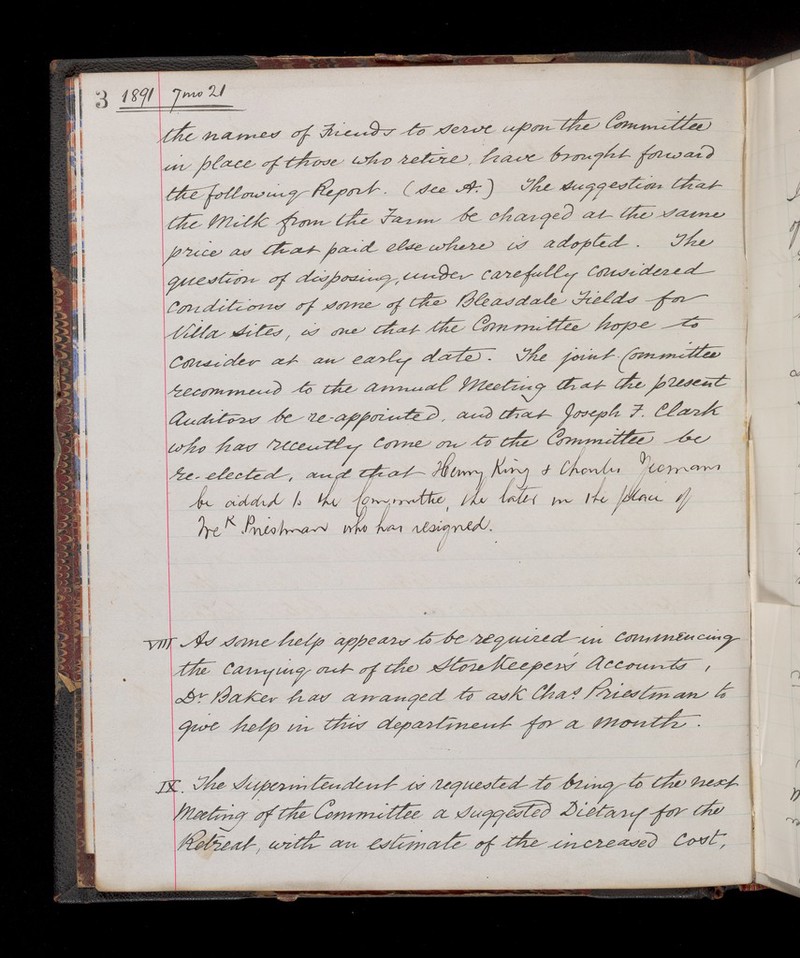 3 1891 7mo 21
the names of Friends to serve upon the Committee
in place of those who retire, have brought forward
the following Report. (see A.) The suggestion that
the Milk from the Farm be charged at the same
price as that paid elsewhere is adopted. The
question of disposing, under carefully considered
conditions of some of the Bleasdale Fields for
Villa Sites, is one that the Committee hope to
consider at an early date. The joint Committee
recommend to the annual Meeting that the present
Auditors be re-appointed, and that Joseph F. Clark
who has recently come on to the Committee be
re-elected, and that Henry King & Charles Yeomans
be added to the Committee, the later in the place of
Fre^k Priestman who has resigned.
VIII As some help appears to be required in commencing
the carrying out of the Storekeeper's Accounts,
Dr. Baker has arranged to ask Chas Priestman to
give help in this department for a month.
IX. The Superintendent is requested to bring to the next
Meeting of the Committee a suggested Dietary for the
Retreat, with an estimate of the increased cost,